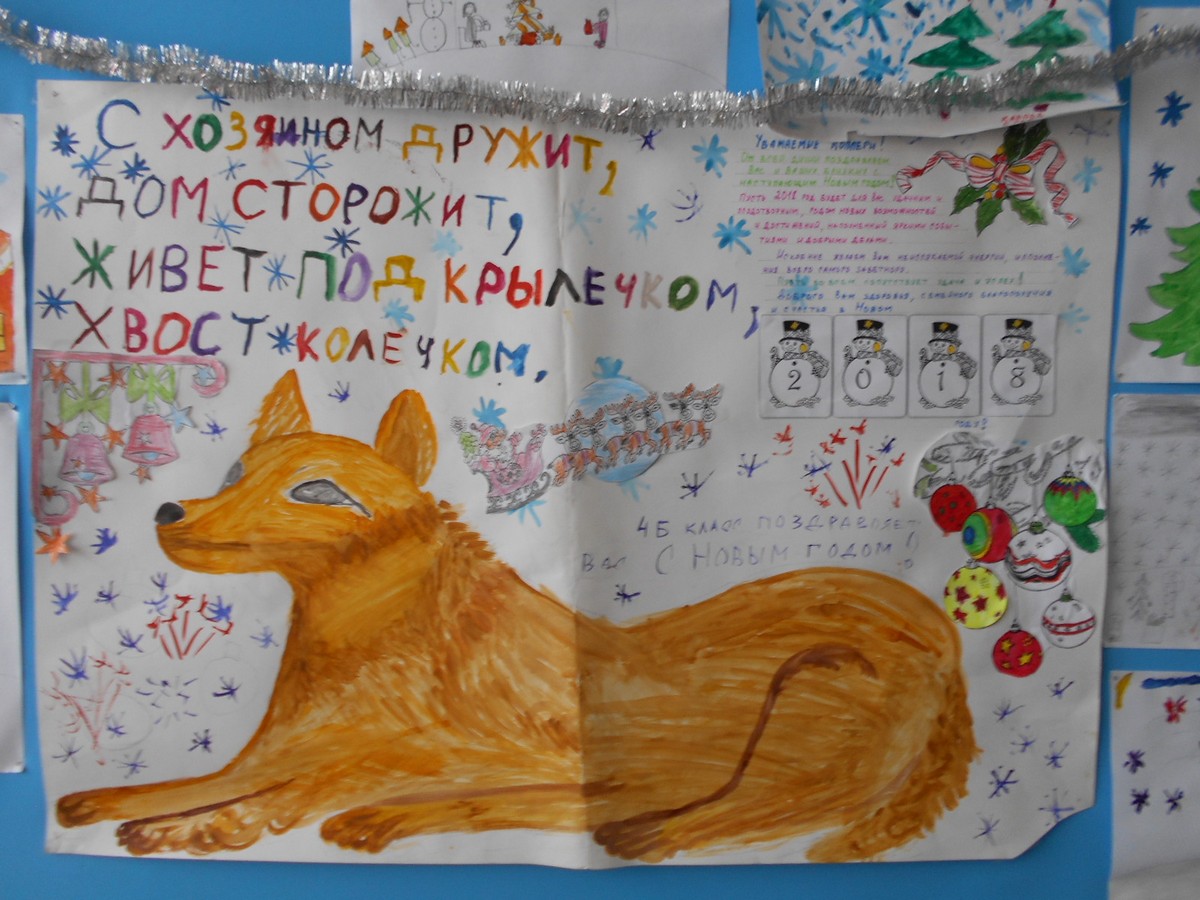 С ХОЗЯИНОМ ДРУЖИТ,
ДОМ СТОРОЖИТ,
ЖИВЕТ ПОД КРЫЛЕЧКОМ,
ХВОСТ КОЛЕЧКОМ.
Уважаемые коллеги!
От всей души поздравляем
Вас и Ваших близких с
наступающим Новым годом!
Пусть 2018 год будет для Вас удачным и
плодотворным, годом новых возможностей
и достижений, наполненный яркими собы-
тиями и добрыми делами.
Искренне желаем Вам неиссякаемой энергии, исполне-
ния всего самого заветного.
Пусть во всем сопутствует удача и успех!
Доброго Вам здоровья, семейного благополучия
и счастья в Новом
2 0 1 8
году!
4Б КЛАСС ПОЗДРАВЛЯЕТ
Вас С НОВЫМ ГОДОМ!